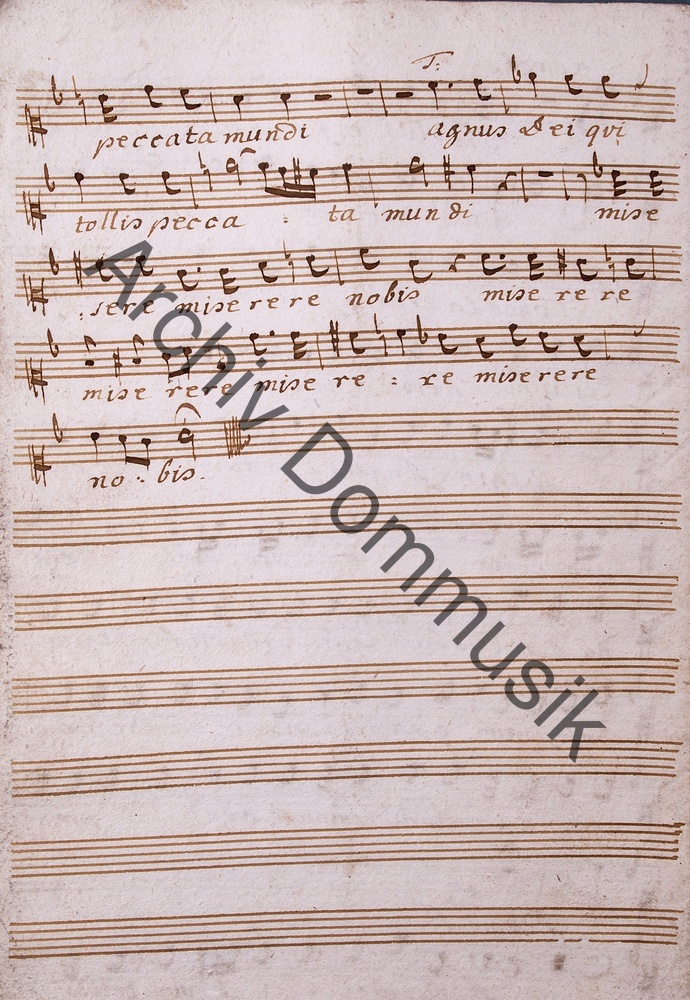 T:
peccata mundi agnus Dei qui
tollis pecca : ta mundi mise
: rere miserere nobis miserere
miserere misere : re miserere
no : bis.
Archiv Dommusik